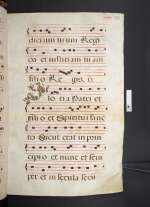 dicium tuum Regi
et iustitiam tuam
filio Regis.
loria Patri et
filio et Spiritui sanc
to Sicut erat in prin
cipio et nunc et sem
per et in secula secu